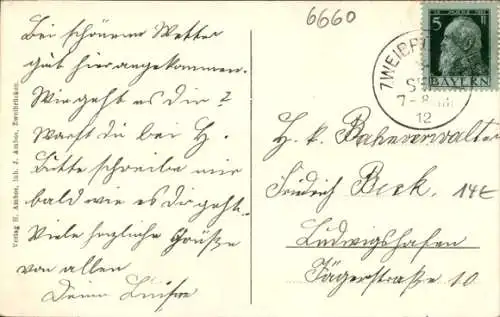 6660
Bei schönem Wetter
gut hier angekommen.
Wie geht es dir?
Warst du bei H.
Bitte schreibe mir
bald wie es Dir geht.
Viele herzliche Grüße
von allen
Deine Luise
Verlag H. Ambos, Inh. J. Ambos, Zweibrücken.
5
BAYERN
7-8
12
H. k. Bahnverwalter
Friedrich Beck.
14€
Ludwigshafen
Jägerstraße 10